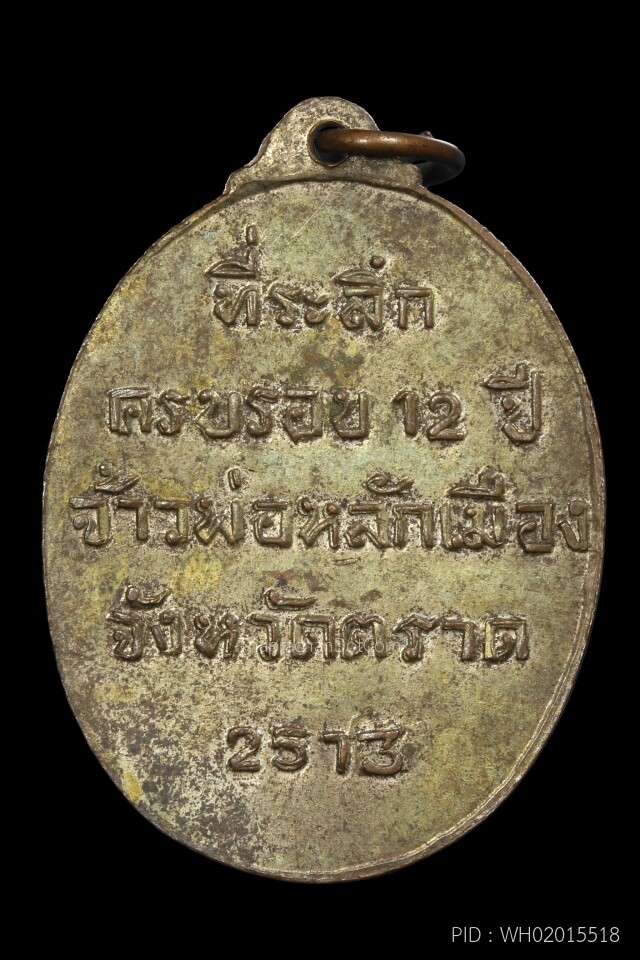 ที่ระลึก
ครบรอบ 12 ปี
จ้าวพ่อหลักเมือง
จังหวัดตราด
2513
PID : WH02015518